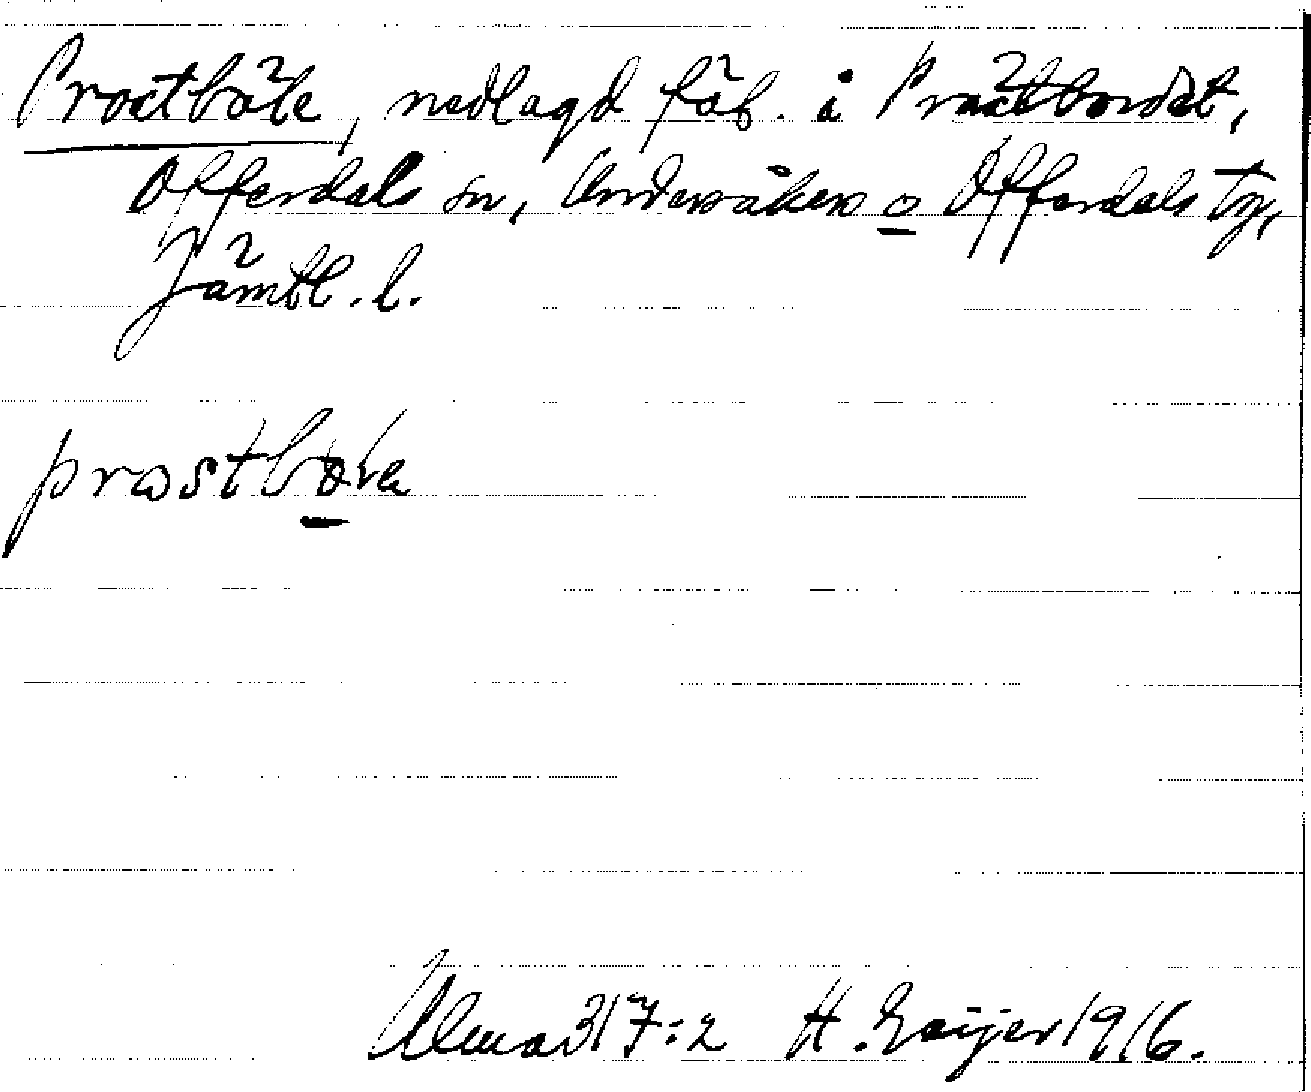 Prästböle, nedlagd fäb. å Prästbordet,
Offerdals sn, Undersåkers o Offerdals tg,
Jämtl. l.
præstbøle
Ulma 317:2 H. Geijer 1916.